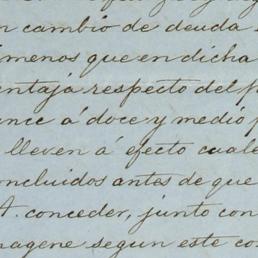 n cambio de deuda
menos que en dicha
entaja respecto del p
ance á doce y medio p
lleven á efecto cuale
oncluidos antes de que
A. conceder, junto con
magene segun este co